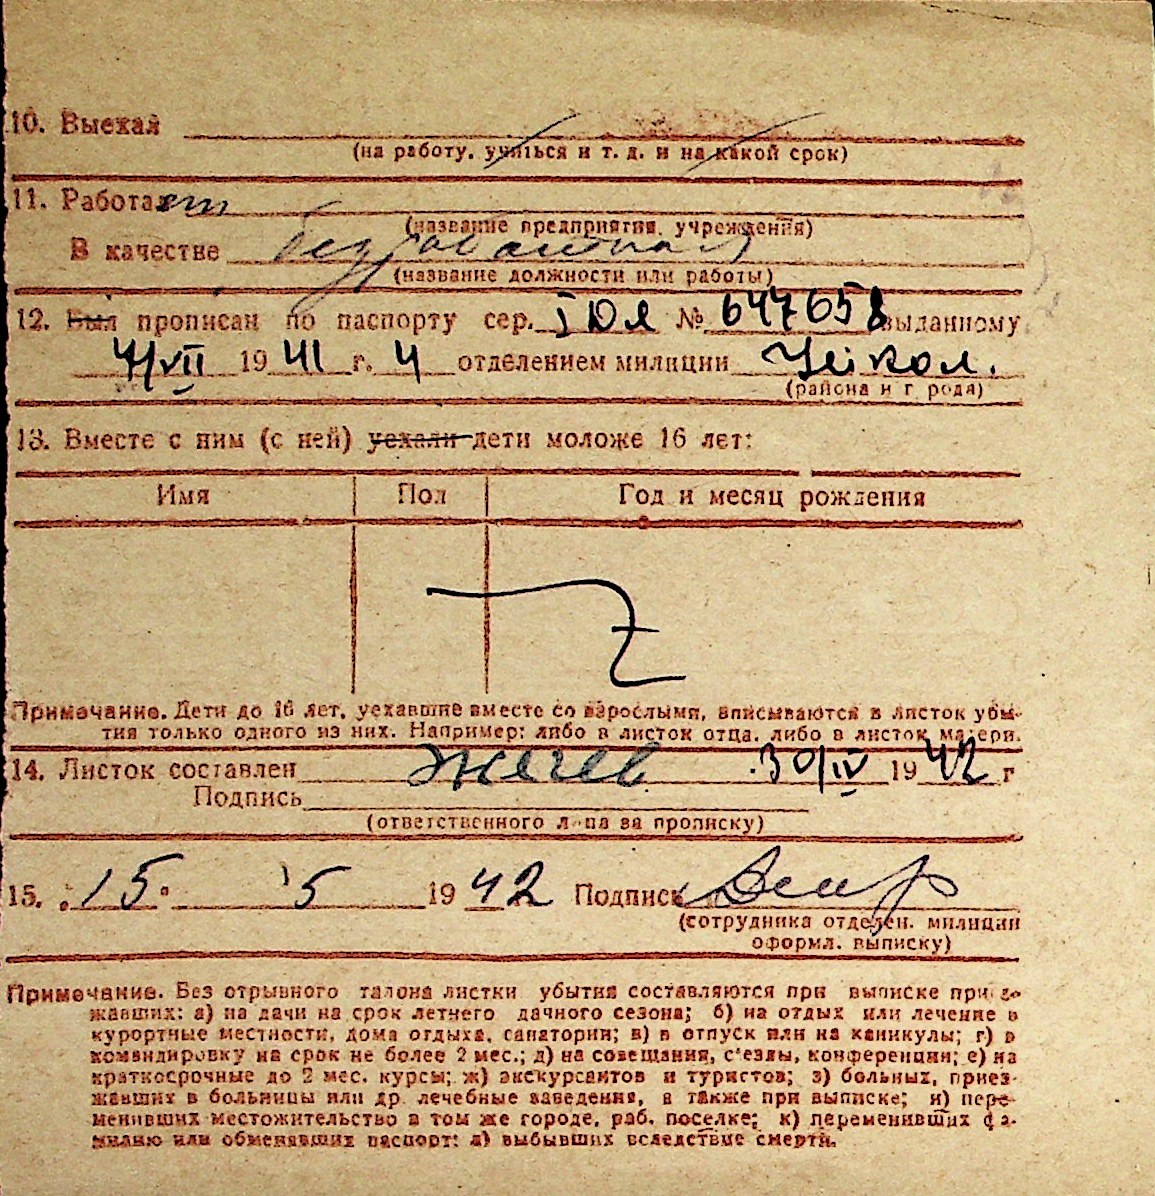 10. Выехал
(на работу, учиться и т. д. и на какой срок)
11. Работает
(название предприятия, учреждения)
В качестве
(название должности или работы)
12. Был прописан по паспорту сер. I ЮЯ № 647658 выданному
4/VII 1941 г. 4 отделением милиции
(района и города)
13. Вместе с ним (с ней) уехали дети моложе 16 лет:
Имя Пол Год и месяц рождения
Z
Примечание. Дети до 16 лет, уехавшие вместе со взрослыми, вписываются в листок убы-
тия только одного из них. Например: либо в листок отца, либо в листок матери.
14. Листок составлен 30/IV 1942 г
Подпись
(ответственного лица за прописку)
15. 15. 5 1942 Подпись
(сотрудника отделен. милиции
оформл. выписку)
Примечание. Без отрывного талона листки убытия составляются при выписке приез-
жавших: а) на дачи на срок летнего дачного сезона; б) на отдых или лечение в
курортные местности, дома отдыха, санатории; в) в отпуск или на каникулы; г) в
командировку на срок не более 2 мес.; д) на совещания, с'езды, конференции; е) на
краткосрочные до 2 мес. курсы; ж) экскурсантов и туристов; з) больных, приез-
жавших в больницы или др. лечебные заведения, а также при выписке; и) пере-
менивших местожительство в том же городе, раб. поселке; к) переменивших фа-
милию или обменявших паспорт; л) выбывших вследствие смерти.